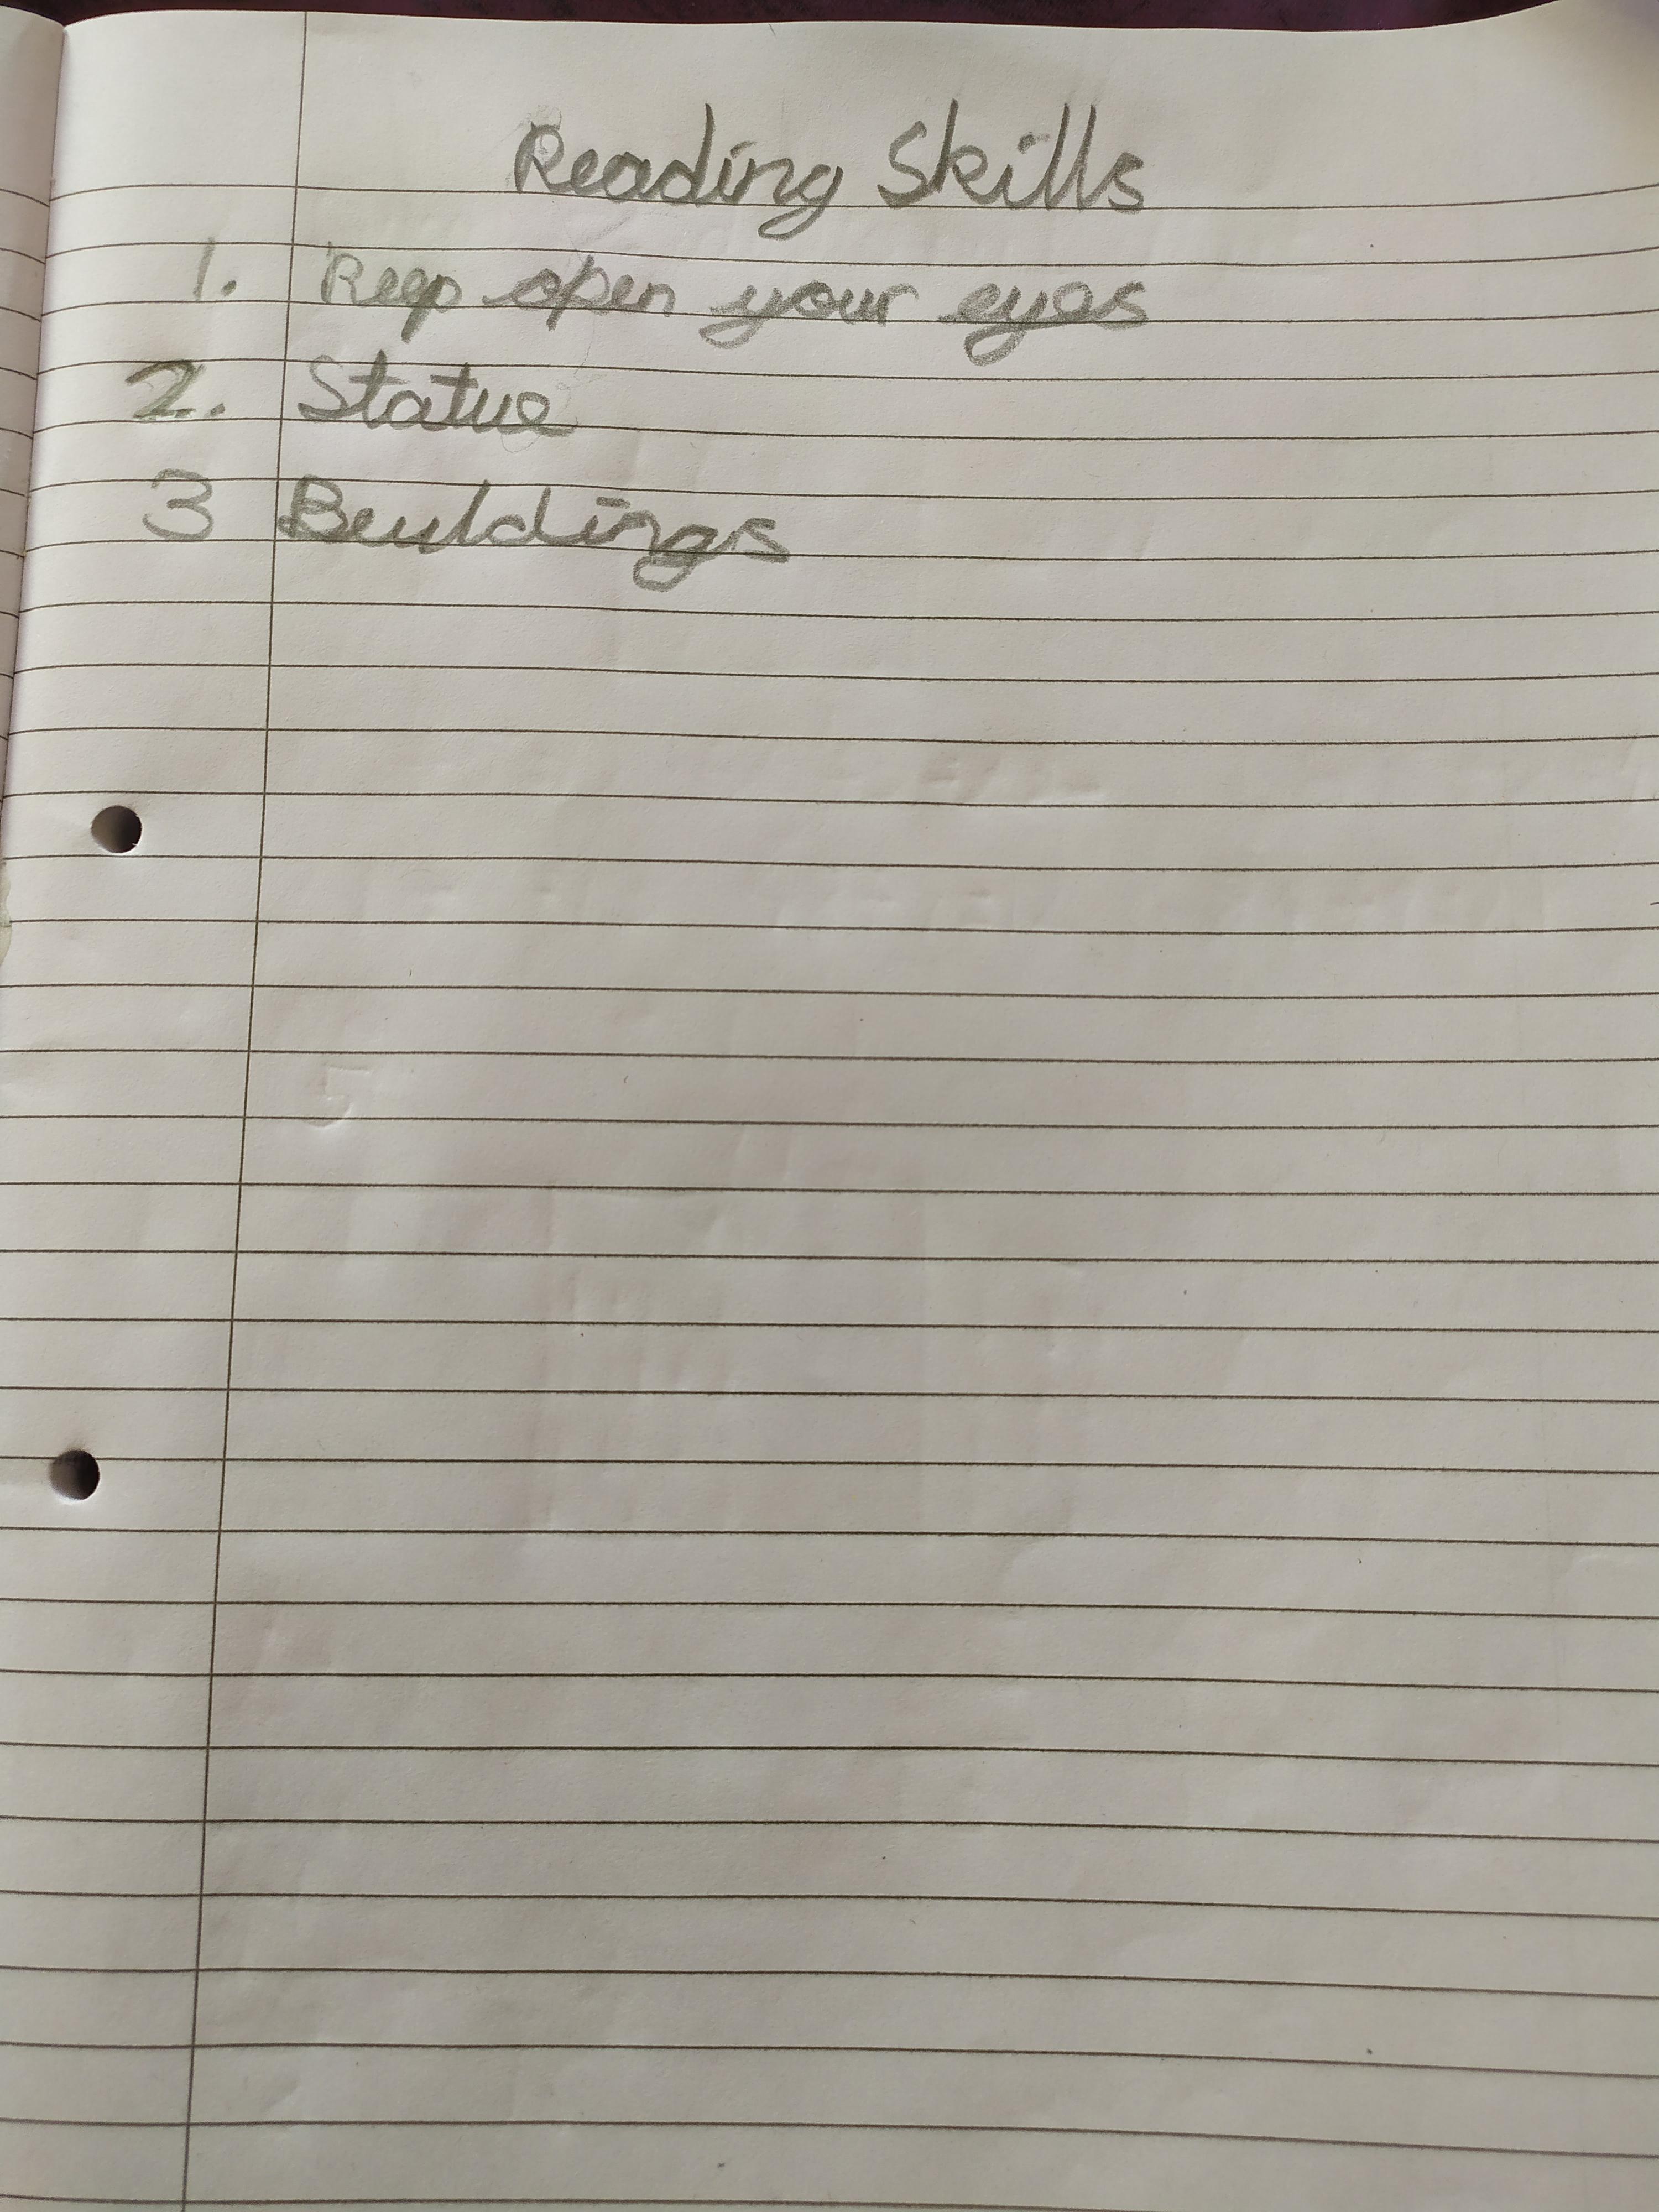 Reading Skills
1. Keep open your eyes
2. Statue
3 Beuldings